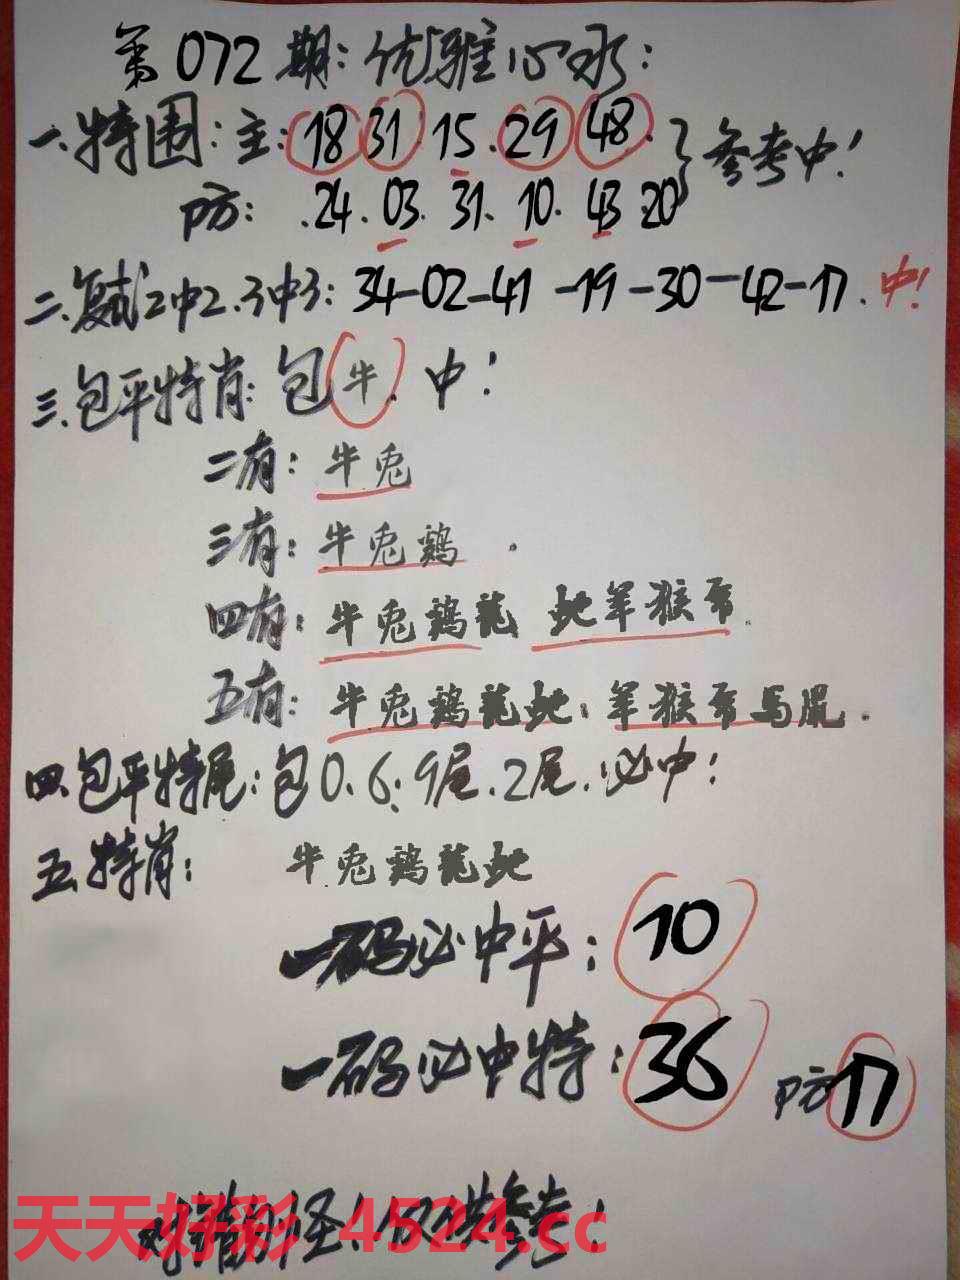 第072期:优雅心水:
一.特围:主:18 31.15.29 48.}参考中!
防:.24.03.31.10.43 20
二.复式2中2.3中3:34-02-41-19-30-42-17.中!
三.包平特肖:包牛.中!
二有:牛兔
三有:牛兔鸡.
四有:牛兔鸡龍 蛇羊猴
五有:牛兔鸡龍蛇.羊猴 馬鼠.
四.包平特尾:包0.6.9尾.2尾.必中!
五.特肖: 牛兔鸡龍蛇
一码必中平:10
一码必中特:36 防17
对错别怪!仅供参考!
天天好彩 4524.cc